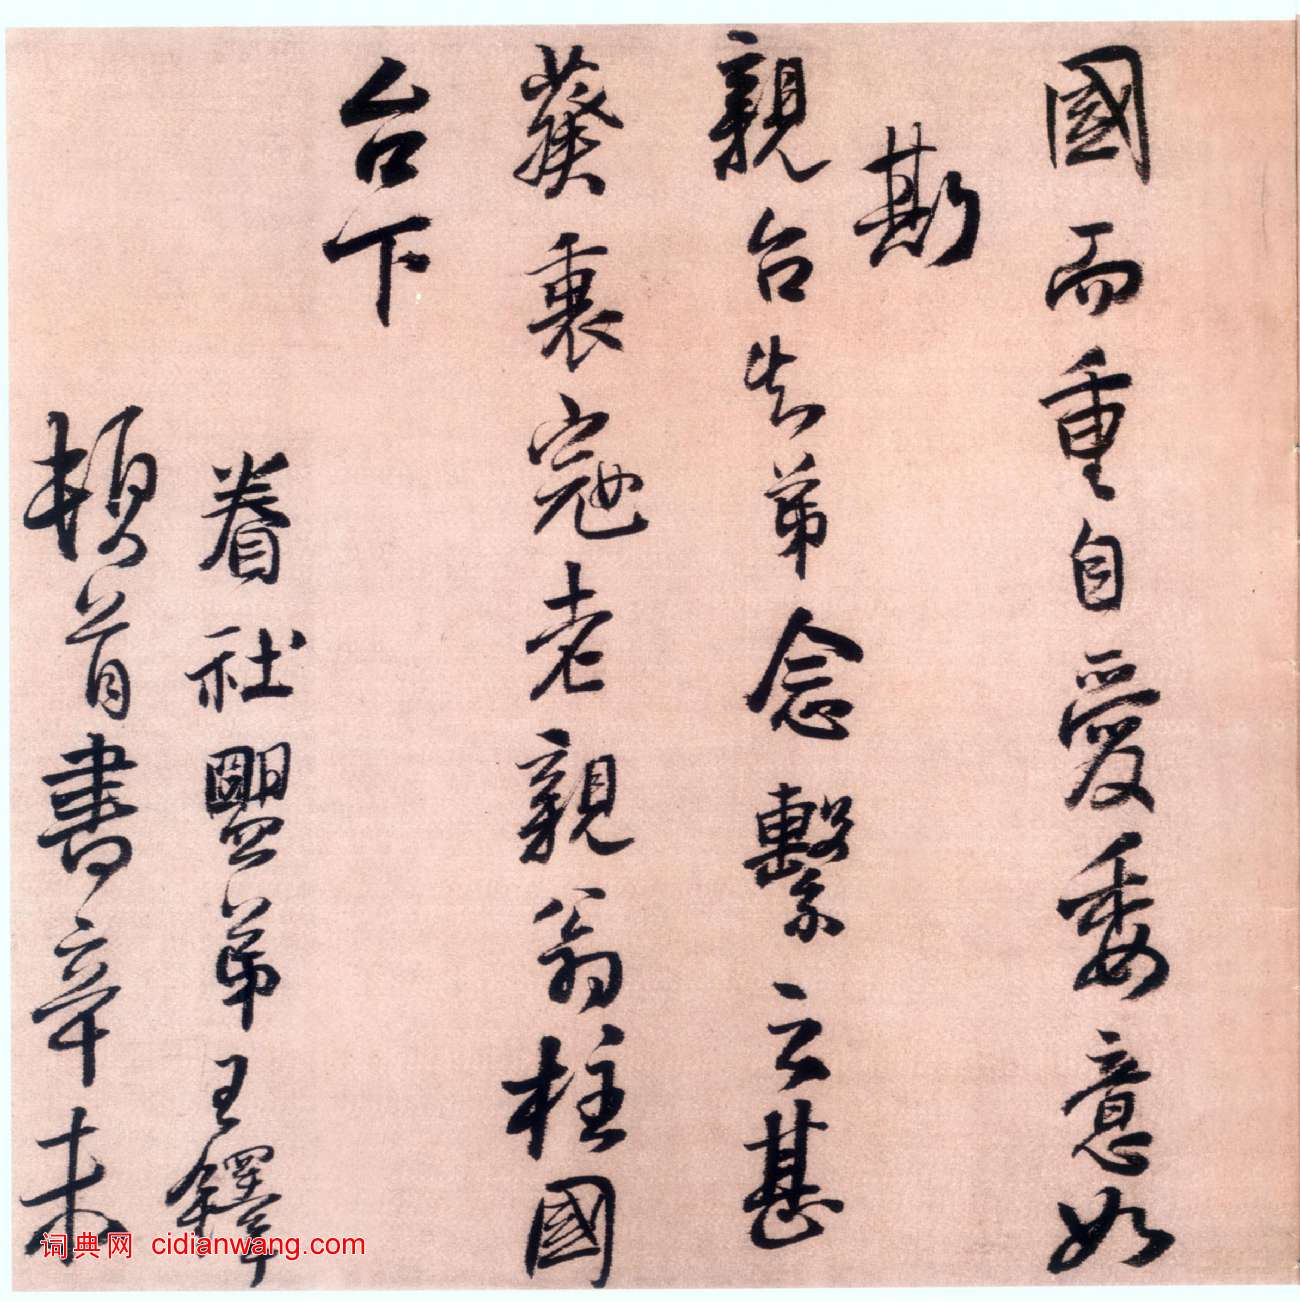 國而重自愛委意如
斯
親台告弟念繫云甚
葵衷寇老親翁柱國
台下
眷社盟弟王鐸
頓首書辛未
词典网 cidianwang.com